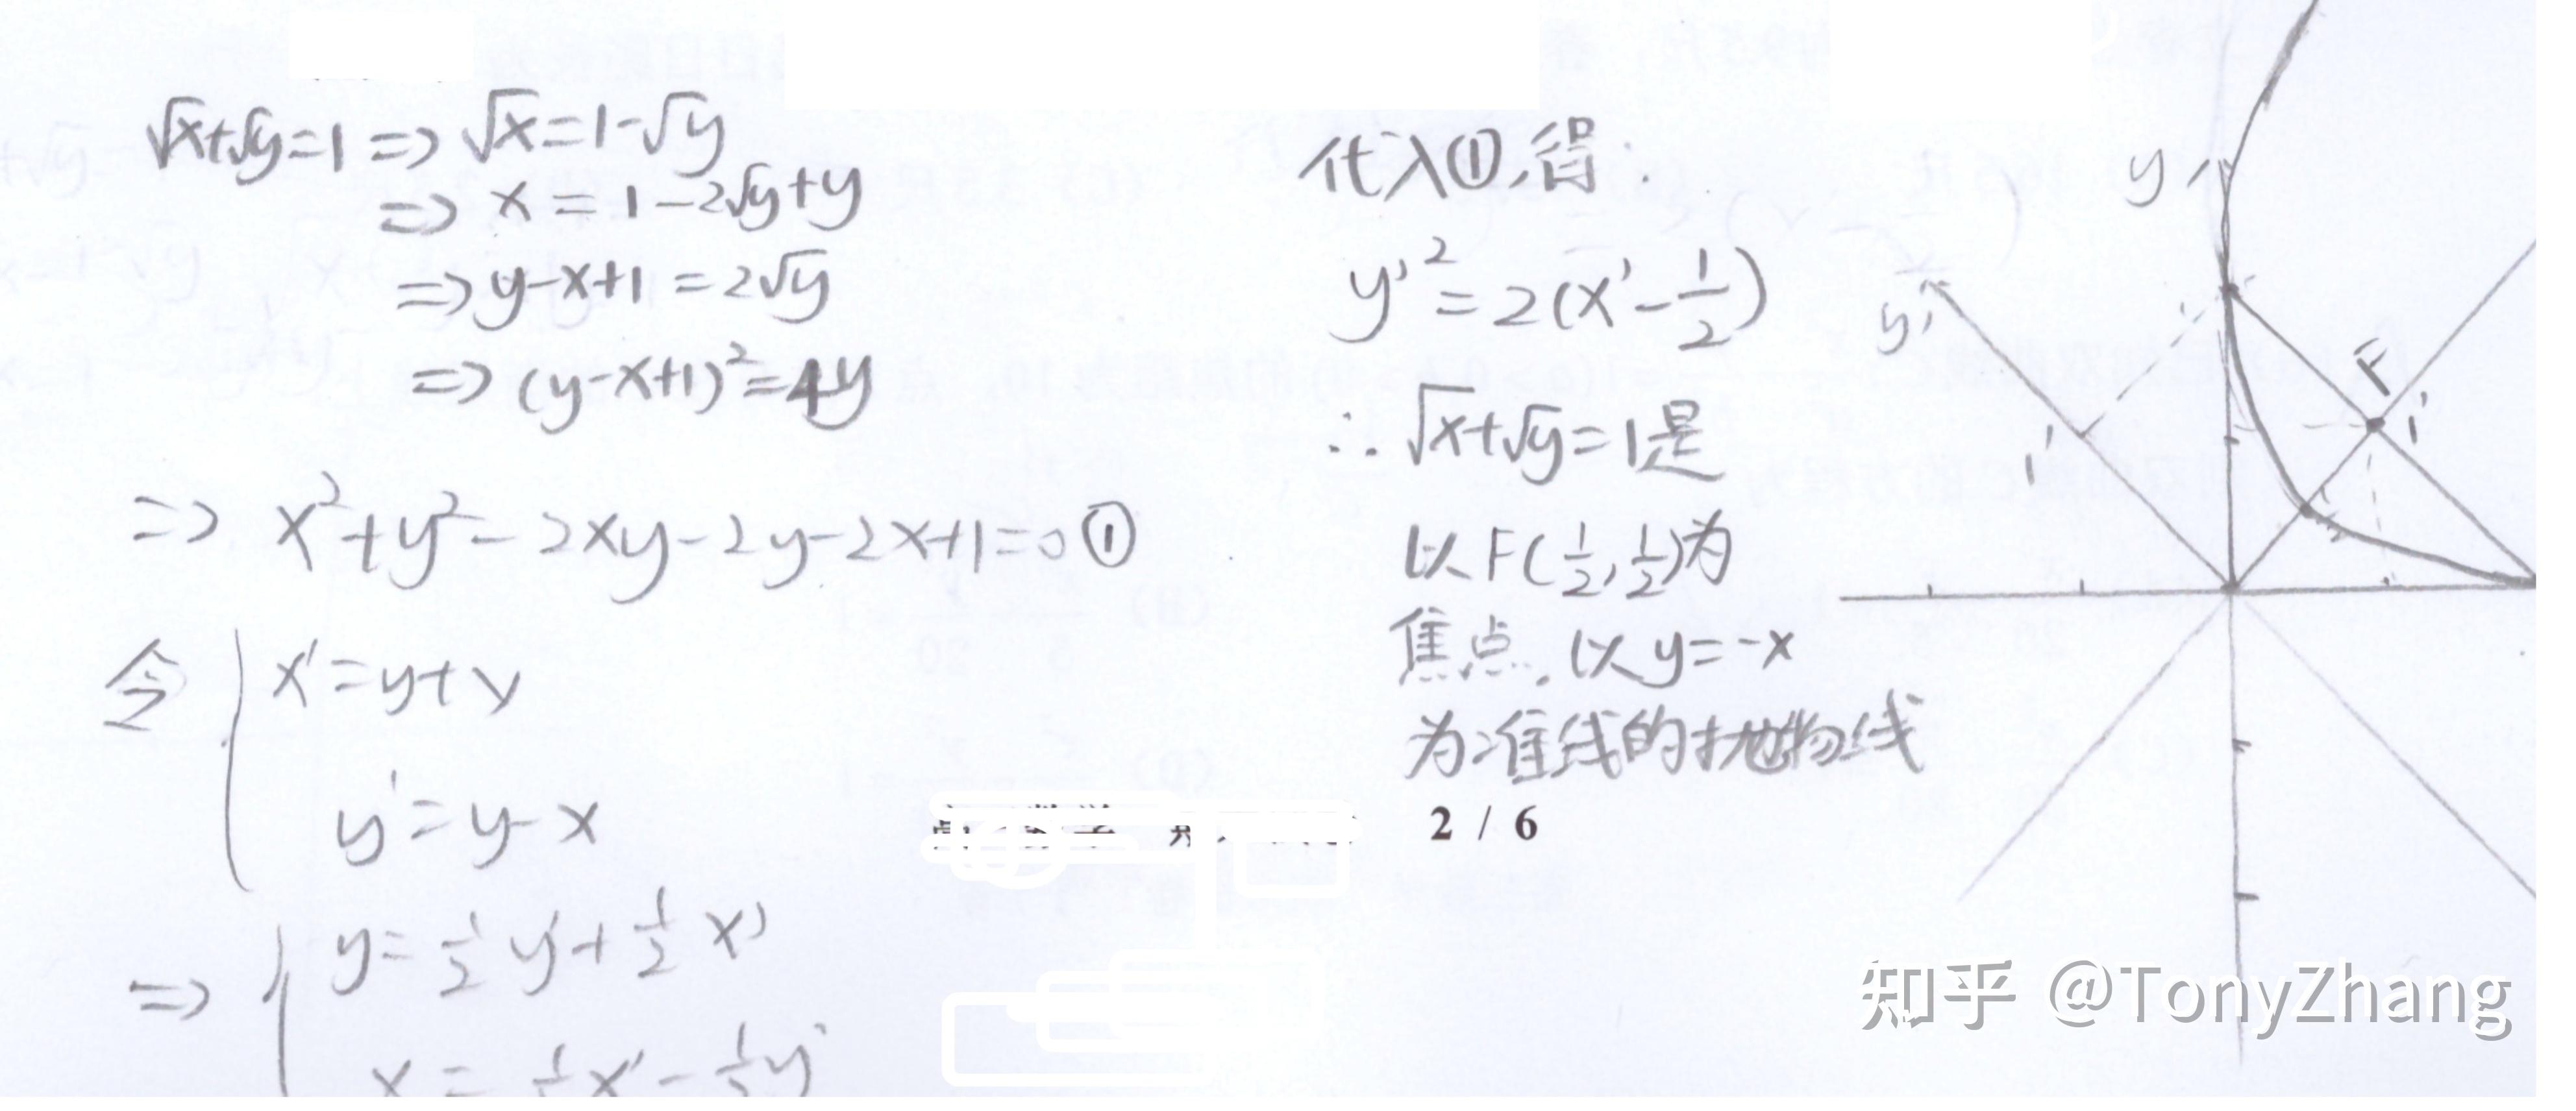 √x+√y=1 => √x=1-√y
=> x=1-2√y+y
=> y-x+1=2√y
=> (y-x+1)²=4y
=> x²+y²-2xy-2y-2x+1=0 ①
令 x'=y+x
y'=y-x
=> y=½y'+½x'
x=½x'-½y'
代入①,得:
y'²=2(x'-½)
∴ √x+√y=1是
以F(½,½)为
焦点,以y=-x
为准线的抛物线
2 / 6
y
y'
F
1'
1'
知乎 @TonyZhang